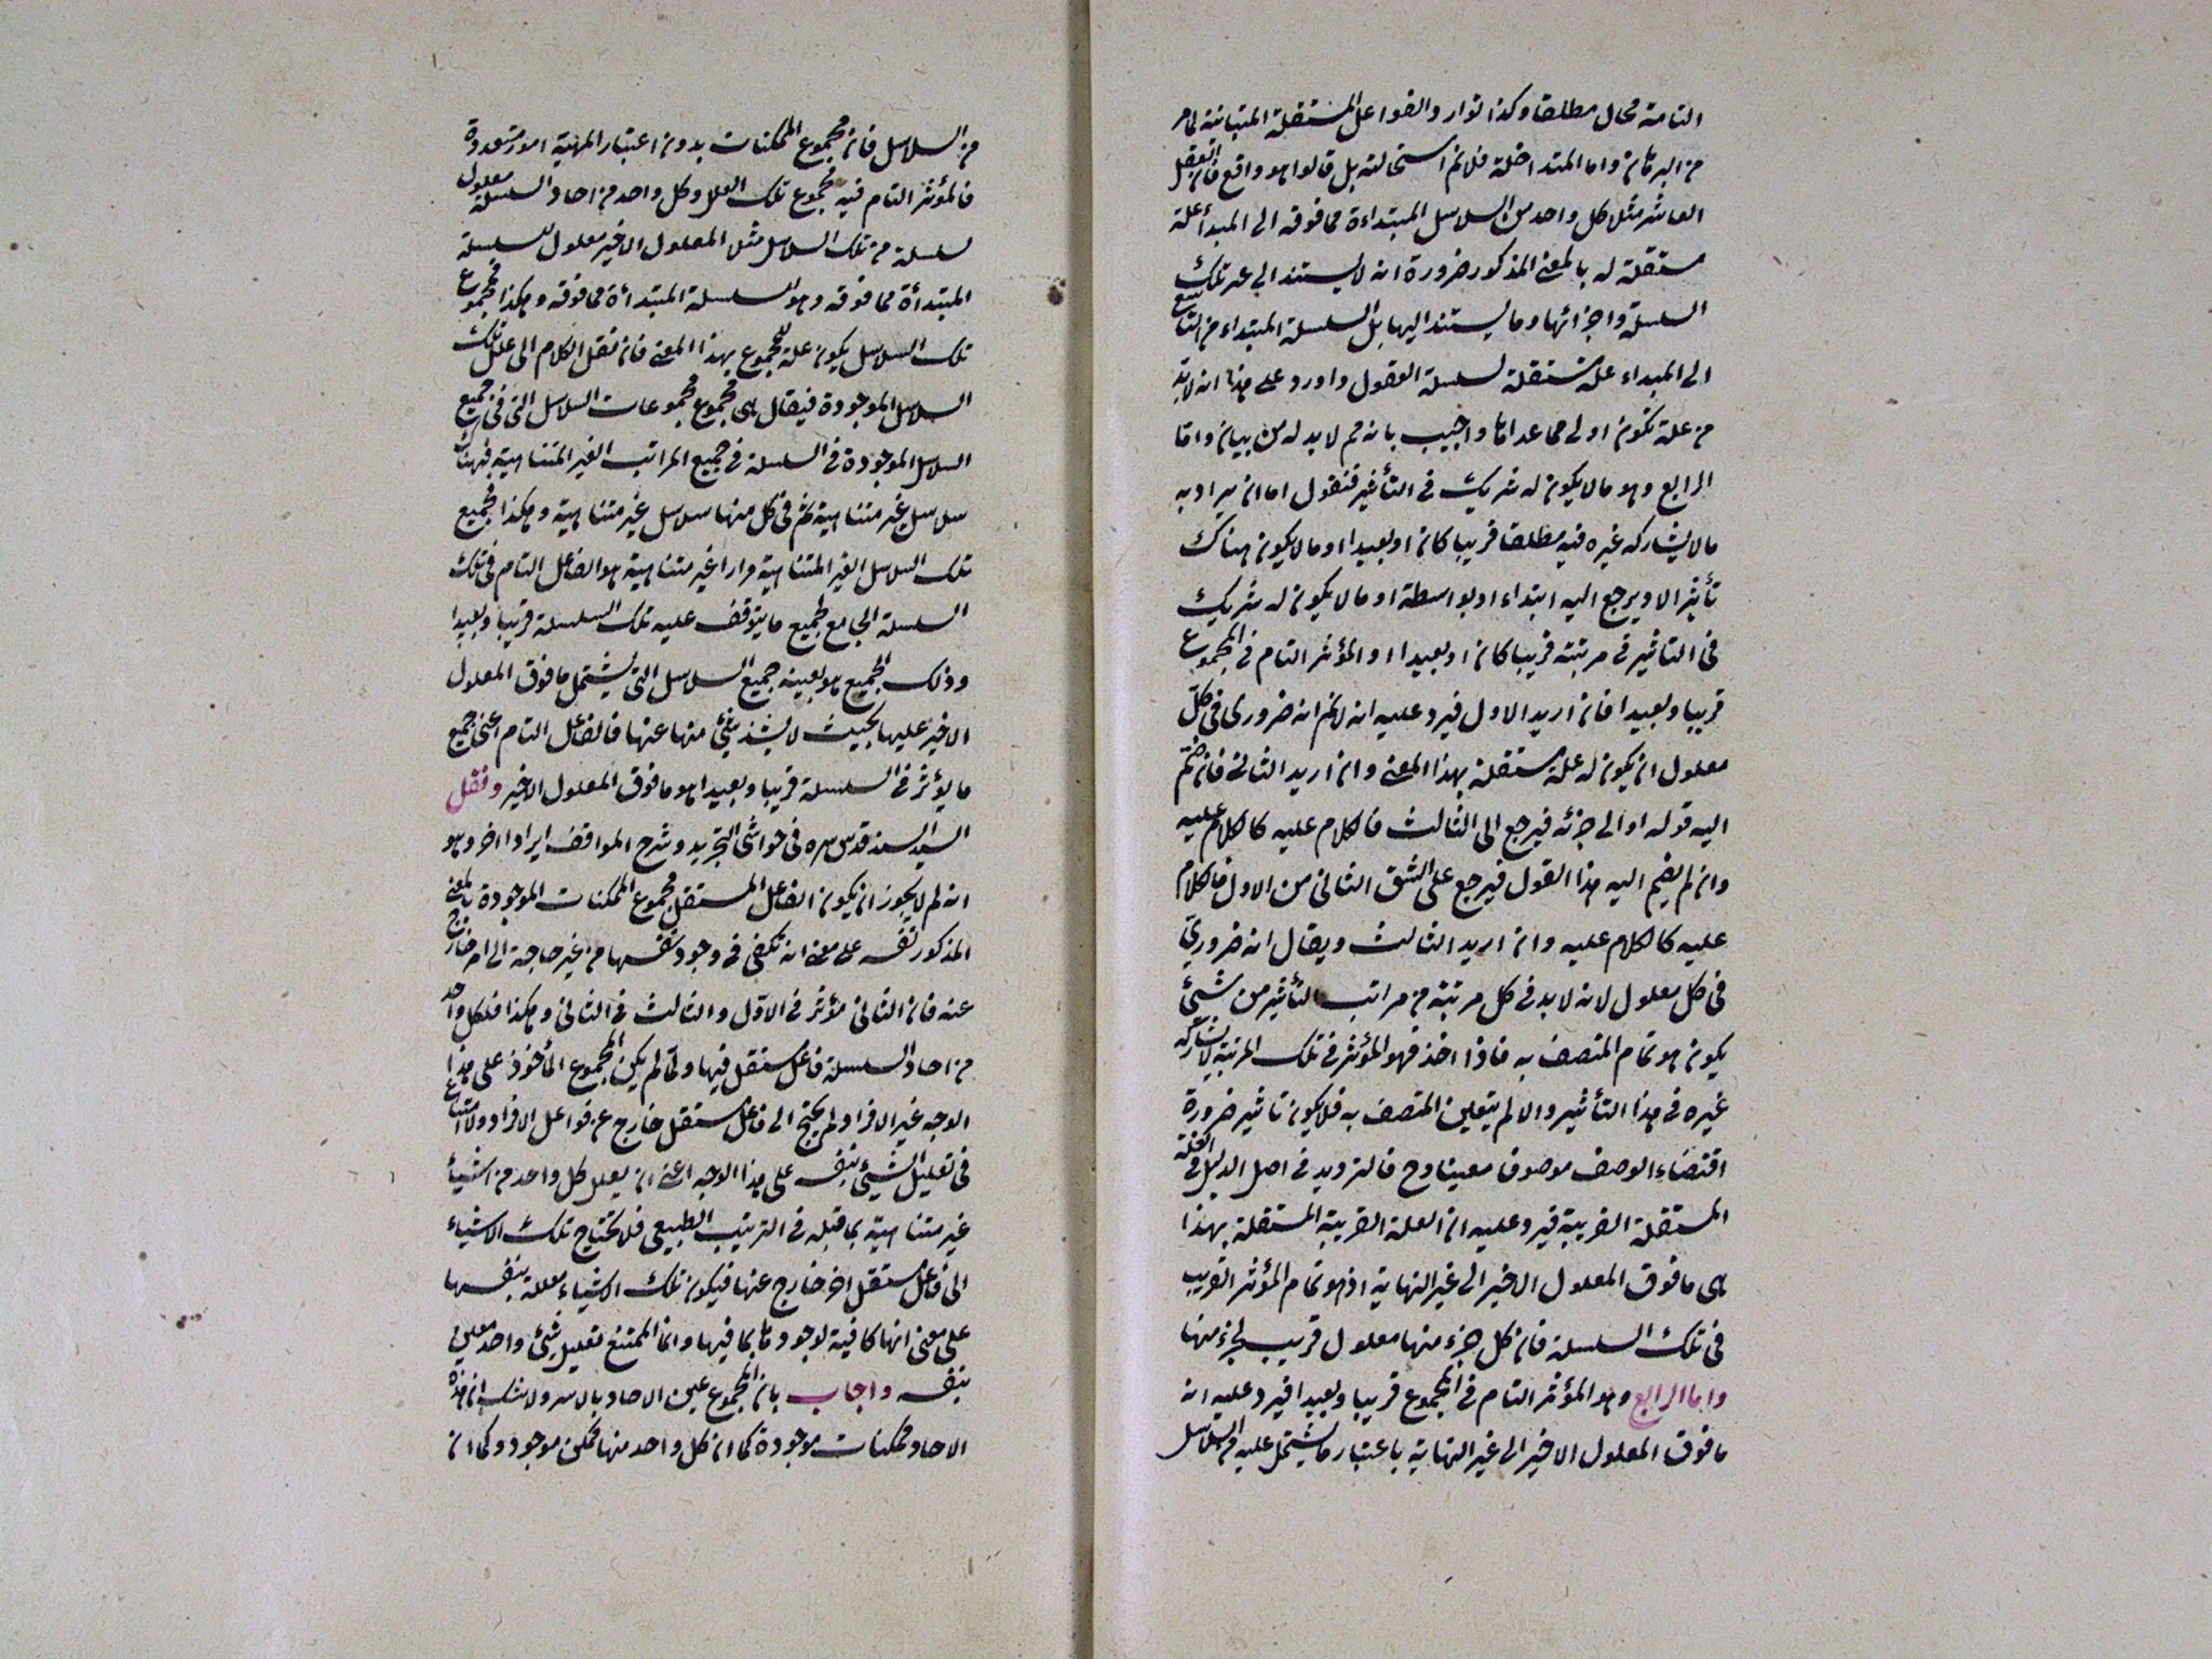 التامة محال مطلقا وكذا توارد الفواعل المستقلة المتباينة لما مر
من البرهان واما المتداخلة فلانم استحالته بل قالوا هو واقع فان العقل
العاشر مثلا كل واحد من السلاسل المبتداءة مما فوقه الى المبدأ علة
مستقلة له بالمعنى المذكور ضرورة انه لا يستند الى غير تلك
السلسلة واجزائها وما يستند اليها بل السلسلة المبتداء من التاسع
الى المبداء علة مستقلة لسلسلة العقول واورد على هذا انه لابد
من علة تكون اولى مما عداها واجيب بانه مم لابد له من بيان واما
الرابع وهو ما لا يكون له شريك فى التأثير فنقول اما ان يراد به
ما لا يشاركه غيره فيه مطلقا قريبا كان او بعيدا او ما لا يكون هناك
تأثير الا ويرجع اليه ابتداء او بواسطة او ما لا يكون له شريك
فى التاثير فى مرتبته قريبا كان او بعيدا او المؤثر التام فى المجموع
قريبا وبعيدا فان اريد الاول فيرد عليه انه لانم انه ضرورى فى كل
معلول ان يكون له علة مستقلة بهذا المعنى وان اريد الثانى فان ضم
اليه قوله او الى جزئه فيرجع الى الثالث فالكلام عليه كالكلام عليه
وان لم يضم اليه هذا القول فيرجع على الشق الثانى من الاول فالكلام
عليه كالكلام عليه وان اريد الثالث ويقال انه ضروري
فى كل معلول لانه لابد فى كل مرتبة من مراتب التأثير من شيئ
يكون هو تمام المتصف به فاذا اخذ فهو المؤثر فى تلك المرتبة لا يشاركه
غيره فى هذا التأثير والا لم يتعين المتصف به فلا يكون تاثير ضرورة
اقتضاء الوصف موصوفا معينا وح فالترديد فى اصل الدليل فى العلة
المستقلة القريبة فيرد عليه ان العلة القريبة المستقلة بهذا
هى ما فوق المعلول الاخير الى غير النهاية اذ هو تمام المؤثر القريب
فى تلك السلسلة فان كل جزء منها معلول قريب لجزء منها
واما الرابع وهو المؤثر التام فى المجموع قريبا وبعيدا فيرد عليه انه
ما فوق المعلول الاخير الى غير النهاية باعتبار ما يشتمل عليه من السلاسل
من السلاسل فان مجموع الممكنات بدون اعتبار الهيئة امور متعددة
فالمؤثر التام فيه مجموع تلك العلل وكل واحد من احاد السلسلة معلول
لسلسلة من تلك السلاسل مثلا المعلول الاخير معلول للسلسلة
المبتدأة مما فوقه وهو للسلسلة المبتدأة مما فوقه وهكذا فمجموع
تلك السلاسل يكون علة للمجموع بهذا المعنى فان نقل الكلام الى علل تلك
السلاسل الموجودة فيقال هى مجموع مجموعات السلاسل التى فى جميع
السلاسل الموجودة فى السلسلة فى جميع المراتب الغير المتناهية فهناك
سلاسل غير متناهية ثم فى كل منها سلاسل غير متناهية وهكذا فجميع
تلك السلاسل الغير المتناهية مرارا غير متناهية هو الفاعل التام فى تلك
السلسلة الجامع لجميع ما يتوقف عليه تلك السلسلة قريبا وبعيدا
وذلك الجميع هو بعينه جميع السلاسل التى يشتمل ما فوق المعلول
الاخير عليها بحيث لا يشذ شئ منها عنها فالفاعل التام اعنى جميع
ما يؤثر فى السلسلة قريبا وبعيدا هو ما فوق المعلول الاخير ونقل
السيد السند قدس سره فى حواشى التجريد وشرح المواقف ايرادا اخر وهو
انه لم لا يجوز ان يكون الفاعل المستقل لمجموع الممكنات الموجودة بالمعنى
المذكور نفسه على معنى انه تكفى فى وجود نفسها من غير حاجة الى امر خارج
عنه فان الثانى مؤثر فى الاول والثالث فى الثانى وهكذا فلكل واحد
من احاد السلسلة فاعل مستقل فيها ولما لم يكن المجموع المأخوذ على هذا
الوجه غير الافراد لم يحتج الى فاعل مستقل خارج عن فواعل الافراد ولا امتناع
فى تعليل الشيئ بنفسه على هذا الوجه اعنى ان يعلل كل واحد من اشياء
غير متناهية بما قبله فى الترتيب الطبيعى فلا تحتاج تلك الاشياء
الى فاعل مستقل اخر خارج عنها فيكون تلك الاشياء معللة بنفسها
على معنى انها كافية لوجودها بما فيها وانما الممتنع تعليل شئ واحد معين
بنفسه واجاب بان المجموع عين الاحاد بالاسر ولا شك ان هذه
الاحاد ممكنات موجودة كما ان كل واحد منها ممكن موجود وكما ان